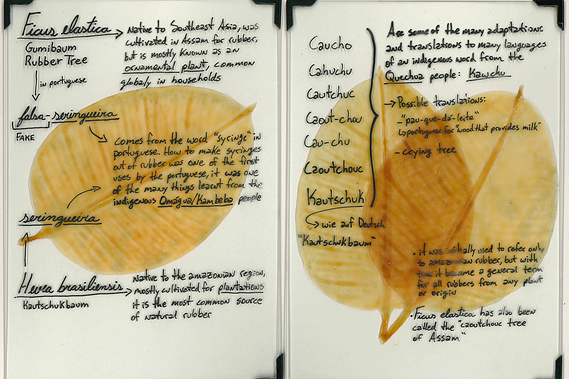 Ficus elastica
Gumibaum
Rubber Tree
Native to Southeast Asia, was
cultivated in Assam for rubber,
but is mostly known as an
ornamental plant, common
globally in households
in portuguese
falsa-seringueira
FAKE
comes from the word "syringe" in
portuguese. How to make syringes
out of rubber was one of the first
uses by the portuguese, it was one
of the many things learnt from the
indigenous Omágua/Kambeba people
seringueira
Hevea brasiliensis
Kautschukbaum
Native to the amazonian region,
mostly cultivated for plantations
it is the most common source
of natural rubber
Caucho
Cahuchu
Cautchuc
Caout-chou
Cau-chu
Caoutchouc
Kautschuk
wie auf Deutsch
"Kautschukbaum"
Are some of the many adaptations
and translations to many languages
of an indigenous word from the
Quechua people: Kawchu
Possible translations:
-"pau-que-dá-leite"
portuguese for "wood that provides milk"
- crying tree
• it was initially used to refer only
to amazonian rubber, but with
time it became a general term
for all rubbers from any plant
or origin
• Ficus elastica has also been
called the "caoutchouc tree
of Assam"